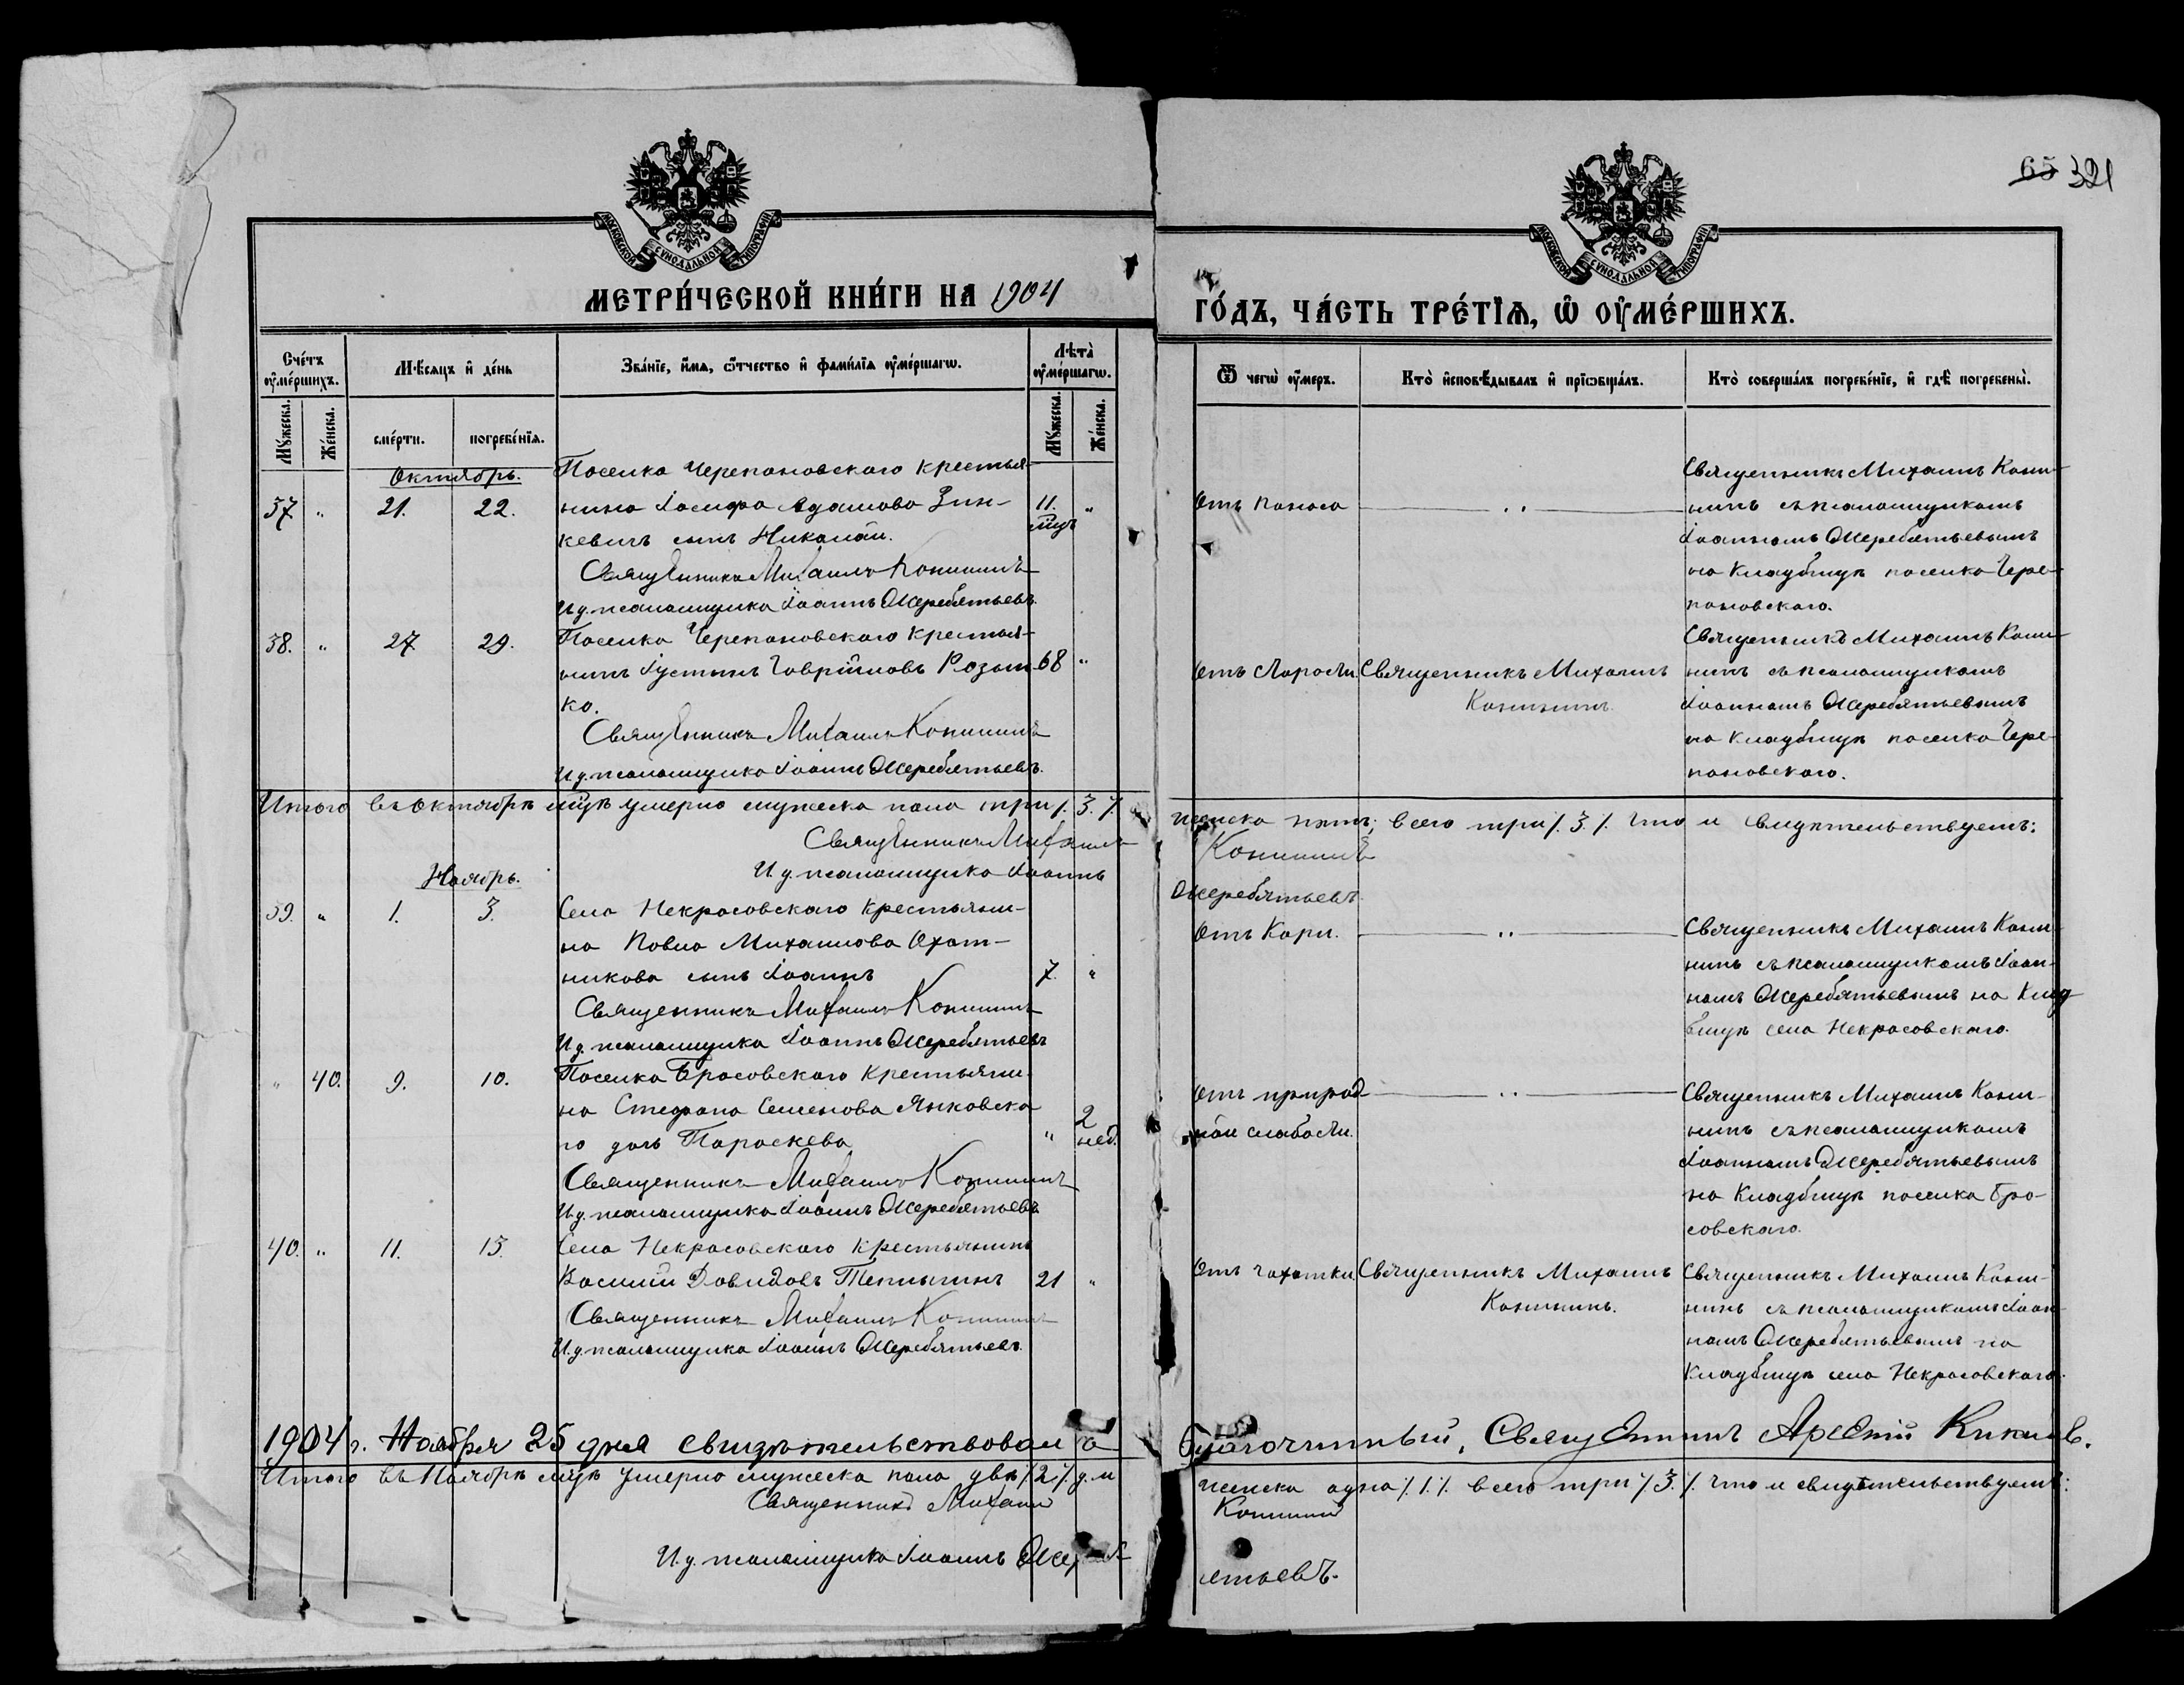 65 321
МОСКОВСКОЙ СѴНОДАЛЬНОЙ ТИПОГРАФІИ
МОСКОВСКОЙ СѴНОДАЛЬНОЙ ТИПОГРАФІИ
МЕТРИ́ЧЕСКОЙ КНИ́ГИ НА 1904
ГО́ДЪ, ЧА́СТЬ ТРЕ́ТІѦ, Ѡ ОУМЕ́РШИХЪ.
Сче́тъ оуме́ршихъ.
Мѣ́сяцъ и де́нь
Зва́нїе, и́мя, ѻ́тчество и фами́лїя оуме́ршагѡ.
Лѣта̀ оуме́ршагѡ.
Ѿ чегѡ̀ оу́меръ.
Кто̀ исповѣ́дывалъ и прїѡбща́лъ.
Кто̀ соверша́лъ погребе́нїе, и гдѣ̀ погребены̀.
Му́жеска.
Же́нска.
сме́рти.
погребе́нїя.
Му́жеска.
Же́нска.
Октябрь.
Поселка Черепановскаго крестья-
37 " 21. 22. нина Іосифа Адамова Зин- 11. "
кевичъ сынъ Николай. мцъ
Священникъ Михаилъ Конининъ
И.д. псаломщика Іоаннъ Жеребятьевъ.
Отъ поноса
Священникъ Михаилъ Кони-
нинъ съ псаломщикомъ
Іоанномъ Жеребятьевымъ
на кладбищѣ поселка Чере-
пановскаго.
Поселка Черепановскаго крестья-
38. " 27 29. нинъ Іустинъ Гавріиловъ Розом 68 "
ко.
Священникъ Михаилъ Конининъ
И.д. псаломщика Іоаннъ Жеребятьевъ.
Отъ старости.
Священникъ Михаилъ
Конининъ.
Священникъ Михаилъ Кони-
нинъ съ псаломщикомъ
Іоанномъ Жеребятьевымъ
на кладбищѣ поселка Чере-
пановскаго.
Итого въ октябрѣ мцѣ умерло мужеска пола три /.3./.
женска нѣтъ; всего три /.3./. что и свидѣтельствуемъ:
Священникъ Михаилъ
Конининъ
И.д. псаломщика Іоаннъ
Жеребятьевъ.
Ноябрь.
39. " 1. 3. Села Некрасовскаго крестьяни-
на Павла Михаилова Охот-
никова сынъ Іоаннъ 7. "
Священникъ Михаилъ Конининъ
И.д. псаломщика Іоаннъ Жеребятьевъ
Отъ кори.
Священникъ Михаилъ Кони-
нинъ съ псаломщикомъ Іоан-
номъ Жеребятьевымъ на клад
бищѣ села Некрасовскаго.
" 40. 9. 10. Поселка Бросовскаго крестьяни-
на Стефана Семенова Янковска
го дочь Параскева " 2 нед.
Священникъ Михаилъ Конининъ
И.д. псаломщика Іоаннъ Жеребятьевъ
Отъ природ
ной слабости.
Священникъ Михаилъ Кони-
нинъ съ псаломщикомъ
Іоанномъ Жеребятьевымъ
на кладбищѣ поселка Бро-
совскаго.
40. " 11. 13. Села Некрасовскаго крестьянинъ
Василій Давидовъ Теплыгинъ 21 "
Священникъ Михаилъ Конининъ
И.д. псаломщика Іоаннъ Жеребятьевъ.
Отъ чахотки
Священникъ Михаилъ
Конининъ.
Священникъ Михаилъ Кони-
нинъ съ псаломщикомъ Іоан-
номъ Жеребятьевымъ на
кладбищѣ села Некрасовскаго.
1904 г. Ноября 25 дня свидѣтельствовалъ
благочинный, Священникъ Арсеній
Итого въ Ноябрѣ мцѣ умерло мужеска пола два /.2./. д.м
женска одна /.1./. всего три /.3./. что и свидѣтельствуемъ:
Священникъ Михаилъ
Конининъ
И.д. псаломщика Іоаннъ Жереб
ятьевъ.